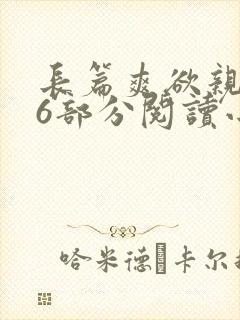 長篇爽欲親
6部分閱讀
哈米德·卡尔